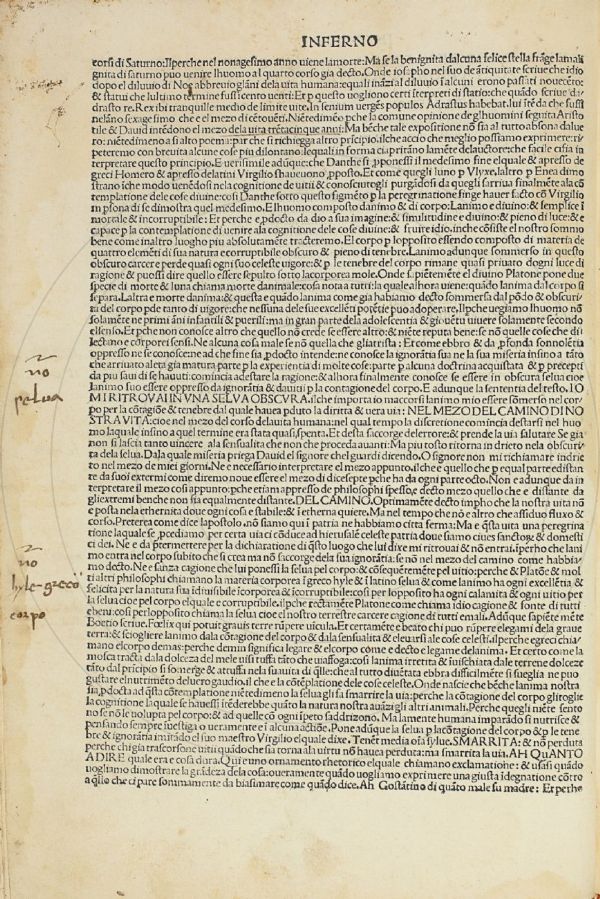 INFERNO
corsi di Saturno: Ilperche nel nonagesimo anno uiene lamorte: Ma se la benignita dalcuna felice stella
gnita di saturno puo uenire lhuomo al quarto corso gia decto. Onde iosapho nel suo de
dopo el diluuio di Noe abbreuio glāni dela uita humana
& statui che lultimo termine fussi cento uenti: Et p questo uogliono certi
drasto re. Rex ibi tranquille medio de limite uite. In senium uergēs populos Adrastus habebat.
Niētedimēo pche la comune opinione de glhuomini seguita Aristo
tile & Dauid intēdono el mezo dela uita trētacinque anni: Ma bēche tale expositione nō sia al tutto absona dal ue
ro: niētedimeno a si alto poema: par che si richiegga altro pricipio: ilche accio che meglio possiamo exprimere: ri
peteremo con breuita alcune cose piu dilontano:
terpretare questo principio. E uerisimile adūque: che Danthe si pponessi il medesimo fine el quale & apresso de
greci Homero & apresso de latini Virgilio shaueuono pposto. Et come quegli luno p Vlyxe. laltro p Enea dimo
strano iche modo uenēdosi nela cognitione de uitii & conosciutogli purgādosi da quegli sarriua finalmēte ala cō
templatione dele cose diuine: cosi Danthe sotto questo figmēto p la peregrinatione finge hauer facto cō Virgilio
in psona di se dimostra quel medesimo. El huomo composto danimo & di corpo: Lanimo e diuino: & semplice
mortale & incorruptibile: Et perche e pdecto da dio a sua imagine: & similitudine e diuino: & pieno di luce: & e
capace p la contemplatione di uenire ala cognitione dele cose diuine: & fruire idio. inche cōsiste el nostro sommo
bene come inaltro luogho piu absolutamēte tracteremo. El corpo p lopposito essendo composto di materia de
quatro elemēti di sua natura e corruptibile obscuro & pieno di tenebre. Lanimo adunque sommerso in questo
obscuro carcere perde quasi ogni suo celeste uigore: & p le tenebre del corpo rimane quasi priuato dogni luce di
ragione & puessi dire quello essere sepulto sotto la corporea mole. Onde sapiētemēte el diuino Platone pone due
specie di morte & luna chiama morte danimale: cosa nota a tutti: la quale alhora uiene: quādo lanima dal corpo si
separa. Laltra e morte danima: & questa e quādo lanima come gia habiamo decto sommersa dal pōdo & obscuri
ta del corpo pde tanto di uigore: che nessuna dele sue excellēti potētie puo adoperare.
solamēte ne primi āni infantili & puerili: ma in gran parte dela adolescentia & giouētu uiuere solamente secondo
el senso. Et pche non conosce altro che quello nō crede se essere altro:
lectano e corporei sensi. Ne alcuna cosa male se nō quella che gliatrista: Et come ebbro & da pfonda sonnolētia
oppresso ne se conosce: ne ad che fine sia pdocto intende: ne conosce la ignorātia sua ne la sua miseria insino a tāto
che arriuato al eta gia matura parte p la experientia di molte cose: parte p alcuna doctrina acquistata & p precepti
da piu saui di se hauuti: comincia adestare la ragione: & alhora finalmente conosce se essere in obscura selua cioe
lanimo suo essere oppresso da ignorātia & da uitii p la contagione del corpo. E adunque la sententia del testo. IO
MI RITROVAI IN VNA SELVA OBSCVRA. ilche importa io maccorsi lanimo mio essere sōmerso nel cor
po per la cōtagiōe & tenebre dal quale hauea pduto la diritta & uera uia: NEL MEZO DEL CAMINO DI NO
STRA VITA: cioe nel mezo del corso dela uita humana: nel qual tempo la discretione comincia destarsi nel huo
mo laquale insino a quel termine era stata quasi spenta. Et desta saccorge del errore: & prende la uia salutare Se gia
non si lascia tanto uincere ala sensualita che non che proceda auanti: Ma piu tosto titorna in drieto nela obscuri
ta dela selua. Da la quale miseria priega Dauid el signore chel guardi dicendo. O signore non mi richiamare indrie
to nel mezo de miei giorni. Ne e necessario interpretare el mezo appunto: il che e quello che p equal parte e distan
te da suoi extermi come diremo noue essere el mezo di dicesepte pche ha da ogni parte octo. Non e adunque da in
terpretare il mezo cosi appunto: pche etiam appresso de philosophi spesso e decto mezo quello che e distante da
gli extremi benche non sia equalmente distante. DEL CAMINO. Optimamēte decto impho che la nostra uita nō
e posta nela ethernita doue ogni cosa e stabile: & ī etherna quiete. Ma nel tempo nō e altro che assiduo fluxo &
corso. Preterea come dice lapostolo. nō siamo qui ī patria ne habbiamo citta ferma: Ma e qsta uita una peregrina
tione laquale se pcediamo per certa uia ci cōduce ad hierusalē celeste patria doue siamo ciues sanctorū & domesti
ci dei. Ne e da ptermettere per la dichiaratione di qsto luogo che lui dixe mi ritrouai & nō entrai. iperho che lani
mo entra nel corpo subito che si crea ma nō saccorge dela sua ignorātia: se nō nel mezo del camino come habbia
mo decto. Ne e sanza cagione che lui ponessi la selua pel corpo: & cōsequētemēte pel uitio: perche & Platōe & mol
ti altri philosophi chiamano la materia corporea ī greco hyle & ī latino selua & come lanimo ha ogni excellētia &
felicita per la natura sua idiuisibile īcorporea & īcorruptibile: cosi per lopposito ha ogni calamita & ogni uitio per
la selua cioe pel corpo el quale e corruptibile. ilpche rectamēte Platone come chiama idio cagione & fonte di tutti
e beni: cosi per lopposito chiama la selua cioe el nostro terrestre carcere cagione di tutti e mali. Adūque sapiēte mēte
Boetio scriue. Fœlix qui potuit grauis terre rūpere uicula. Et certamēte e beato chi puo rūpere e legami dela graue
terra: & sciogliere lanimo dala cōtagione del corpo & dala sensualita & eleuarsi ale cose celesti. ilperche e greci chia
mano el corpo demas: perche demin significa legare & el corpo come e decto e legame del anima. Et certo come la
mosca tracta dala dolceza del mele ui si tuffa tāto che ui affoga: cosi lanima irretita & inuischiata dale terrene dolceze
tāto dal pricipio si somerge & attuffa nela suauita di qlle: che al tutto diuētata ebbra difficilmēte si sueglia ne puo
gustare el nutrimēto del uero gaudio. ilche e la cōteplatione dele cose celeste. Onde nascie che bēche lanima nostra
sia pdocta ad qsta cōtemplatione niētedimeno la selua gli fa smarrire la uia: perche la cōtagione del corpo gli toglie
la cognitione
no se nō le uolupta pel corpo: & ad quelle cō ogni ipeto saddrizono. Ma la mente humana imparādo si nutrisce &
pensando sempre iuestiga o ueramente e ī alcuna actiōe. Pone adūque la selua p la cōtagione del corpo & p le tene
bre & ignorātia imitādo el suo maestro Virgilio el quale dixe. Tenēt media oīa syluę. SMARRITA: & nō perduta
perche chi gia trascorso ne uitii quādo che sia torna ala uirtu nō hauea perduta: ma smarrita la uia. AH QVANTO
A DIRE quale era e cosa dura. Qui e uno ornamento rhetorico el quale chiamano exclamatione: & usasi quādo
uogliamo dimostrare la grādeza dela cosa: o ueramente quādo uogliamo exprimere una giusta idegnatione cōtro
a qllo che ci pare sommamente da biasimare come quādo dice. Ah Gostātino di quāto male fu madre: Et perche
no
pelua
no
hyle greco
corpo